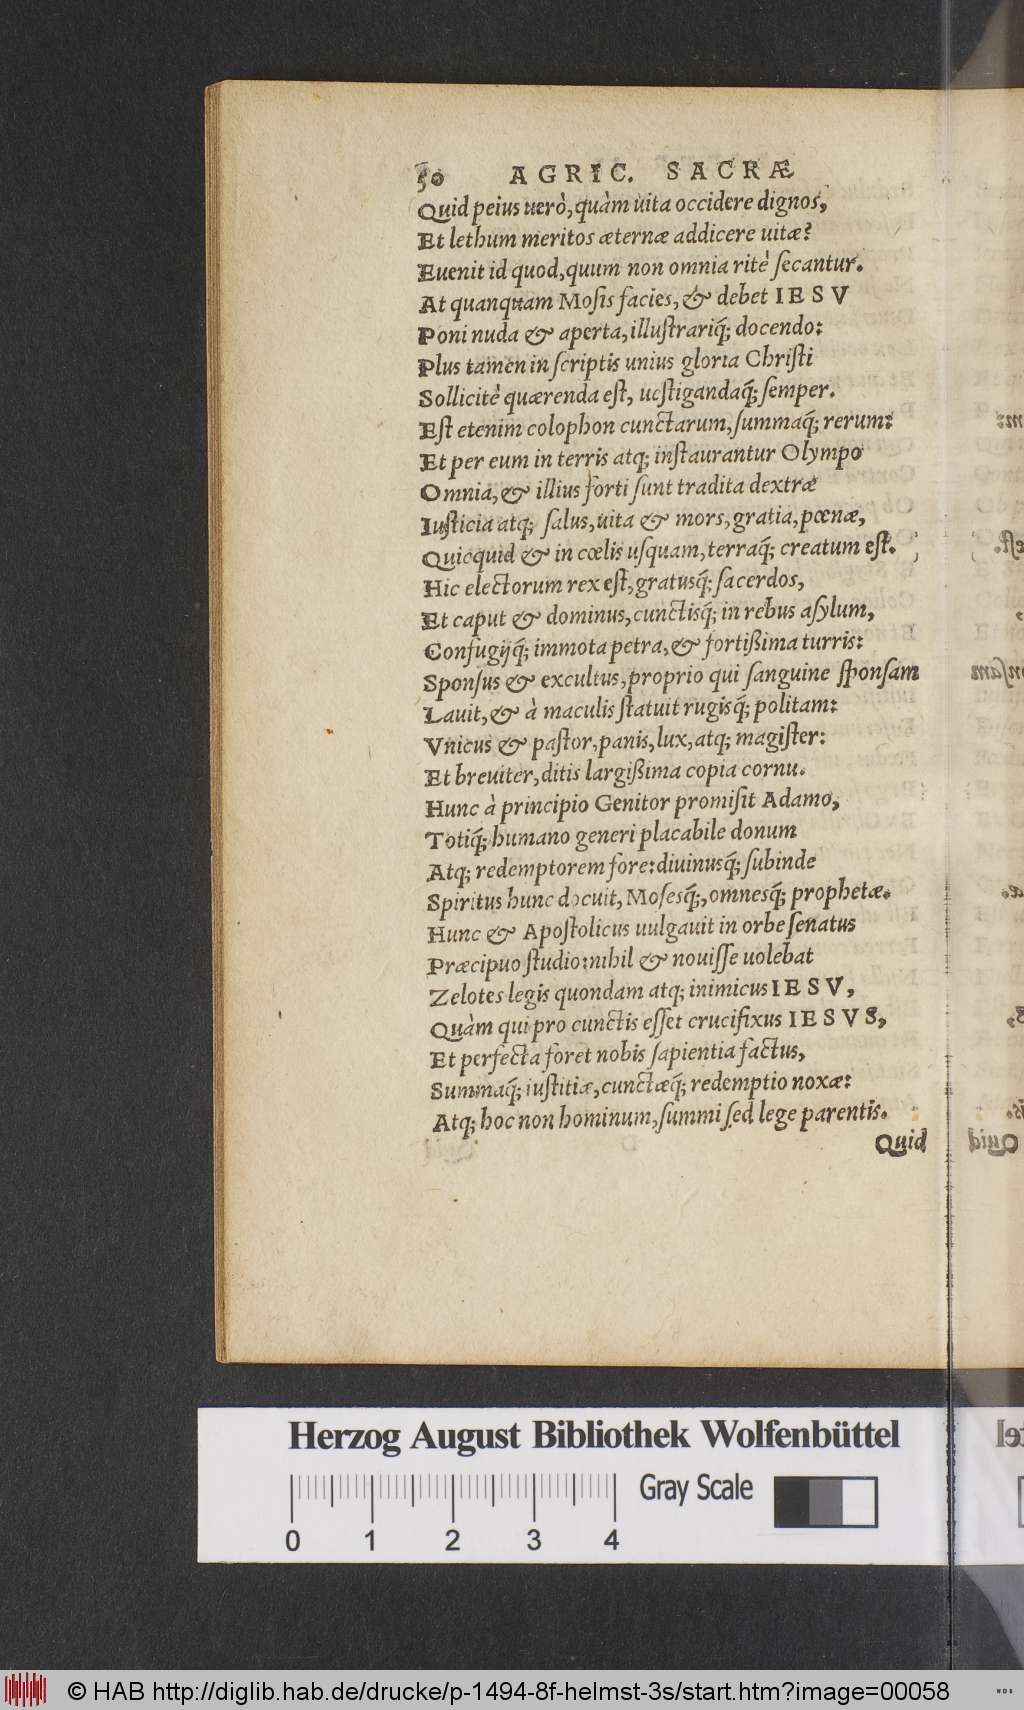 50 AGRIC. SACRÆ
Quid peius uerò, quàm uita occidere dignos,
Et lethum meritos æternæ addicere uitæ?
Euenit id quod, quum non omnia ritè secantur.
At quanquam Mosis facies, & debet IESV
Poni nuda & aperta, illustrariq́; docendo:
Plus tamen in scriptis unius gloria Christi
Sollicitè quærenda est, uestigandaq́; semper.
Est etenim colophon cunctarum, summaq́; rerum:
Et per eum in terris atq; instaurantur Olympo
Omnia, & illius forti sunt tradita dextræ
Iusticia atq; salus, uita & mors, gratia, pœnæ,
Quicquid & in cœlis usquam, terraq́; creatum est.
Hic electorum rex est, gratusq́; sacerdos,
Et caput & dominus, cunctisq́; in rebus asylum,
Confugijq́; immota petra, & fortißima turris:
Sponsus & excultus, proprio qui sanguine sponsam
Lauit, & à maculis statuit rugisq́; politam:
Vnicus & pastor, panis, lux, atq; magister:
Et breuiter, ditis largißima copia cornu.
Hunc à principio Genitor promisit Adamo,
Totiq́; humano generi placabile donum
Atq; redemptorem fore: diuinusq́; subinde
Spiritus hunc docuit, Mosesq́;, omnesq́; prophetæ.
Hunc & Apostolicus uulgauit in orbe senatus
Præcipuo studio: nihil & nouisse uolebat
Zelotes legis quondam atq; inimicus IESV,
Quàm qui pro cunctis esset crucifixus IESVS,
Et perfecta foret nobis sapientia factus,
Summaq́; iustitiæ, cunctæq́; redemptio noxæ:
Atq; hoc non hominum, summi sed lege parentis.
Quid
Herzog August Bibliothek Wolfenbüttel
Gray Scale
0 1 2 3 4
© HAB http://diglib.hab.de/drucke/p-1494-8f-helmst-3s/start.htm?image=00058